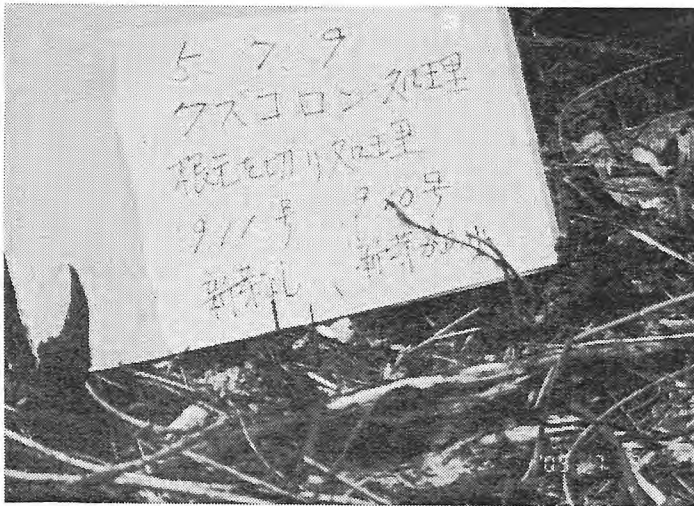 5 7 9
クズコロン処理
根元を切り処理
911号 910号
新芽 新芽があ